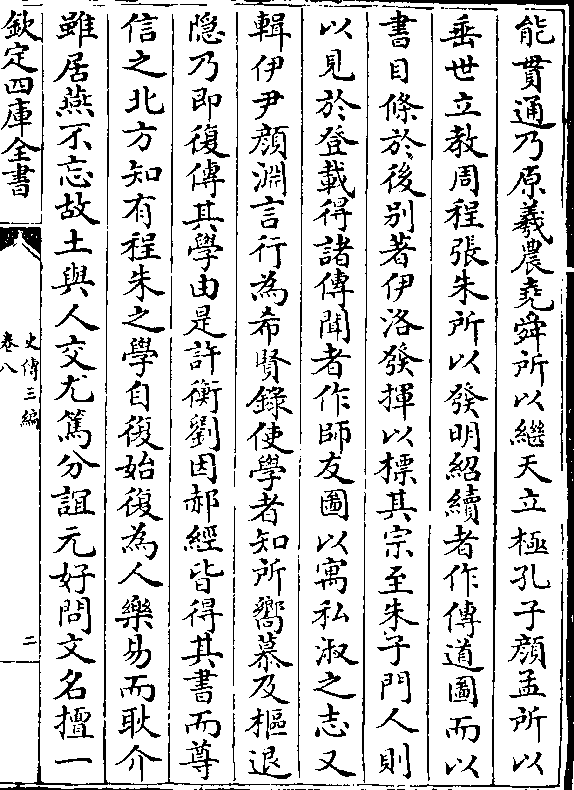 能貫通乃原羲農堯舜所以繼天立極孔子顔孟所以
垂世立教周程張朱所以發明紹續者作傳道圖而以
書目條於後别著伊洛發揮以標其宗至朱子門人則
以見於登載得諸傳聞者作師友圖以寓私淑之志又
輯伊尹顔淵言行為希賢錄使學者知所嚮慕及樞退
隠乃即復傳其學由是許衡劉因郝經皆得其書而尊
信之北方知有程朱之學自復始復為人樂易而耿介
雖居燕不忘故土與人交尤篤分誼元好問文名擅一
欽定四庫全書
史傳三編
卷八
二